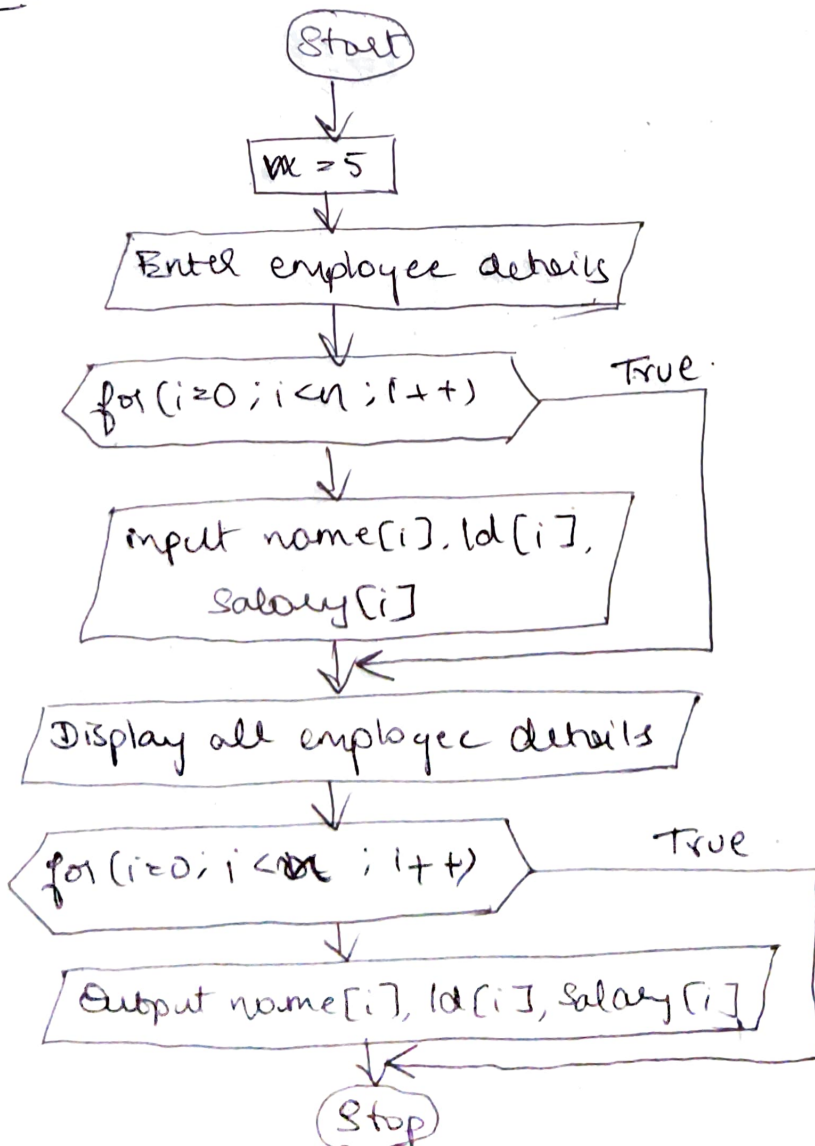 Start
= 5
Enter employee details
for (i=0 ; i<n ; i++)
True.
input name[i], Id[i],
Salary[i]
Display all employee details
for (i=0; i< ; i++)
True
Output name[i], Id[i], Salary[i]
Stop